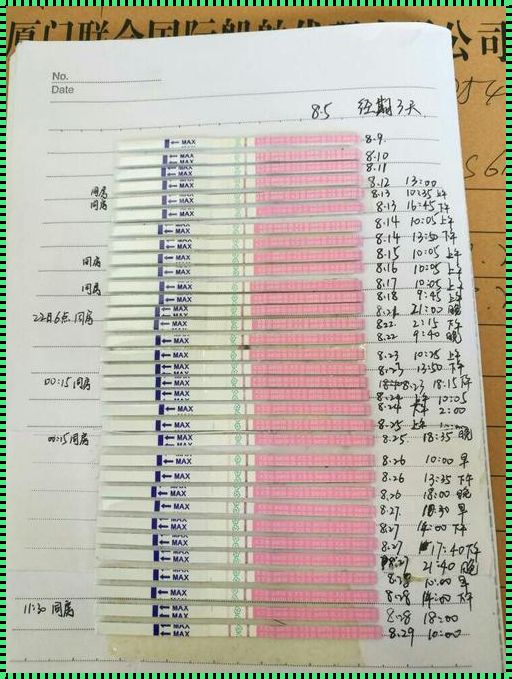 厦门联合国际船舶代理 公司
No.
Date
8.5 经期3天
← MAX 8.9
← MAX 8.10
← MAX 8.11
← MAX 8.12 13:00
同房 ← MAX 8.13 10:35 上午
同房 ← MAX 8.13 16:45 下午
← MAX 8.14 10:05 上午
← MAX 8.14 13:50 下午
← MAX 8.15 10:05 上午
同房 ← MAX 8.16 10:05 上午
← MAX 8.17 10:05 上午
同房 ← MAX 8.18 9:45 上午
← MAX 8.21 21:00 晚
22日6点 同房 ← MAX 8.22 2:15 下午
← MAX 8.22 9:40 晚
← MAX 8.23 10:25 上午
← MAX 8.23 13:50 下午
00:15 同房 ← MAX 8.23 18:15 下午
← MAX 8.24 上午 10:05
← MAX 8.24 下午 2:00
← MAX 8.25 上午
00:15 同房 ← MAX 8.25 18:35 晚
← MAX 8.26 10:00 早
← MAX 8.26 13:25 下午
← MAX 8.26 18:00 晚
← MAX 8.27 10:30 早
← MAX 8.27 14:00 下午
← MAX 8.27 17:40 下午
← MAX 8.27 21:40 晚
← MAX 8.28 10:00 早
← MAX 8.28 14:00 下午
11:30 同房 ← MAX 8.28 18:00
← MAX 8.29 10:00